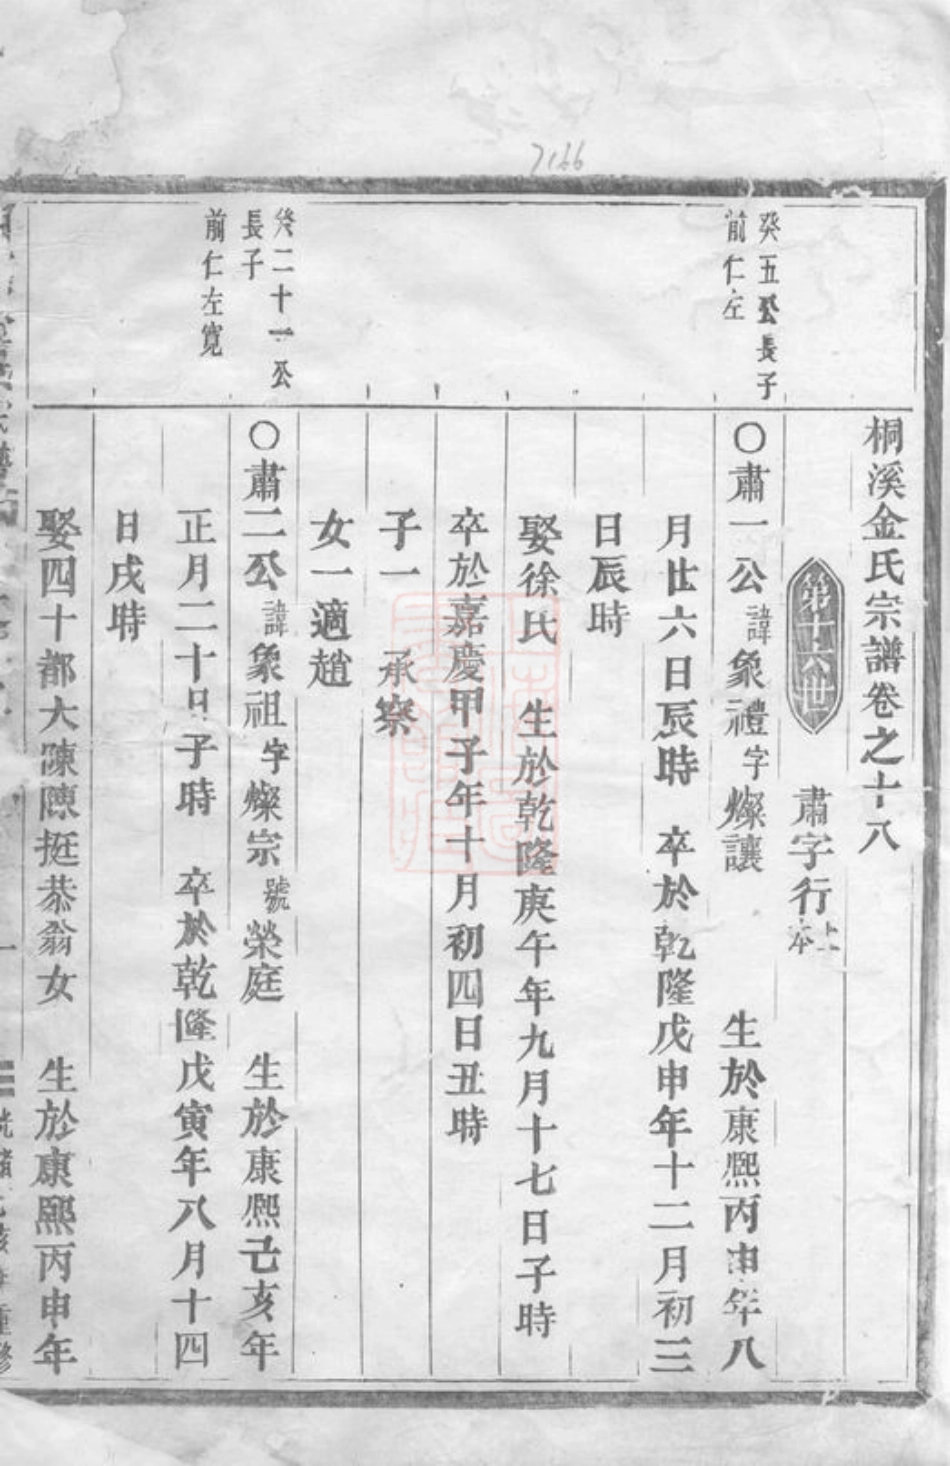 7166
桐溪金氏宗譜卷之十八
第十六世
肅字行上本
癸五公長子
前仁左
○肅一公諱象禮字燦讓 生於康熙丙申年八
月廿六日辰時 卒於乾隆戊申年十二月初三
日辰時
娶徐氏 生於乾隆庚午年九月十七日子時
卒於嘉慶甲子年十月初四日丑時
子一 承寮
女一適趙
癸二十一公
長子
前仁左寬
○肅二公諱象祖字燦宗號榮庭 生於康熙己亥年
正月二十日子時 卒於乾隆戊寅年八月十四
日戌時
娶四十都大陳陳挺恭翁女 生於康熙丙申年